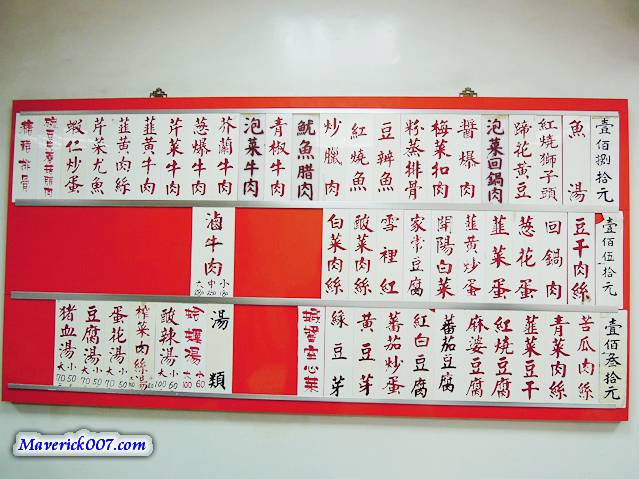 壹佰捌拾元
魚湯
紅燒獅子頭
蹄花黄豆
泡菜回鍋肉
醬爆肉
梅菜扣肉
粉蒸排骨
豆瓣魚
紅燒魚
炒臘肉
魷魚腊肉
青椒牛肉
泡菜牛肉
芥蘭牛肉
葱爆牛肉
芹菜牛肉
韮黄牛肉
韮黄肉絲
芹菜尤魚
蝦仁炒蛋
壹佰伍拾元
豆干肉絲
回鍋肉
葱花蛋
韮菜蛋
韮黄炒蛋
開陽白菜
家常豆腐
雪裡紅
酸菜肉絲
白菜肉絲
滷牛肉
大 中 小
壹佰叁拾元
苦瓜肉絲
青菜肉絲
韮菜豆干
紅燒豆腐
麻婆豆腐
蕃茄豆腐
紅白豆腐
蕃茄炒蛋
黄豆芽
綠豆芽
蝦醬空心菜
湯類
蚵蠣湯 大100 小60
酸辣湯 大100 小60
榨菜肉絲湯
蛋花湯 大70 小50
豆腐湯 大70 小50
豬血湯 大70 小50
Maverick007.com